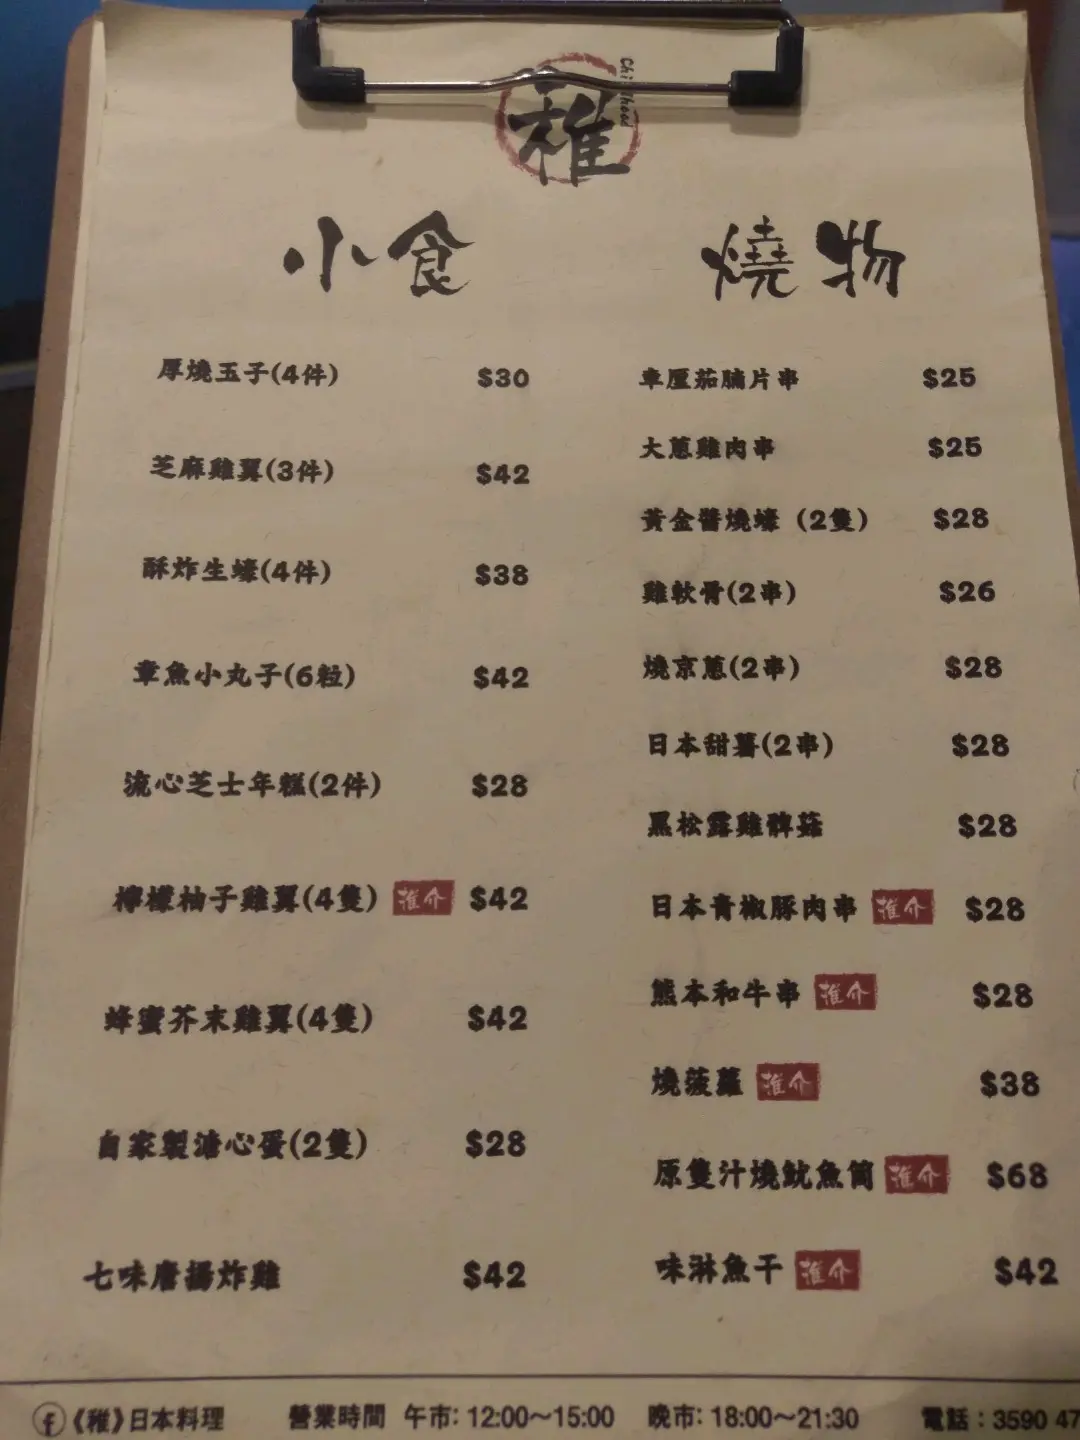 稚
小食
厚燒玉子(4件) $30
芝麻雞翼(3件) $42
酥炸生蠔(4件) $38
章魚小丸子(6粒) $42
流心芝士年糕(2件) $28
檸檬柚子雞翼(4隻) 推介 $42
蜂蜜芥末雞翼(4隻) $42
自家製溏心蛋(2隻) $28
七味唐揚炸雞 $42
燒物
車厘茄腩片串 $25
大蔥雞肉串 $25
黃金醬燒蠔 (2隻) $28
雞軟骨(2串) $26
燒京蔥(2串) $28
日本甜薯(2串) $28
黑松露雞髀菇 $28
日本青椒豚肉串 推介 $28
熊本和牛串 推介 $28
燒菠蘿 推介 $38
原隻汁燒魷魚筒 推介 $68
味淋魚干 推介 $42
《稚》日本料理 營業時間 午市: 12:00～15:00 晚市: 18:00～21:30 電話：3590 47